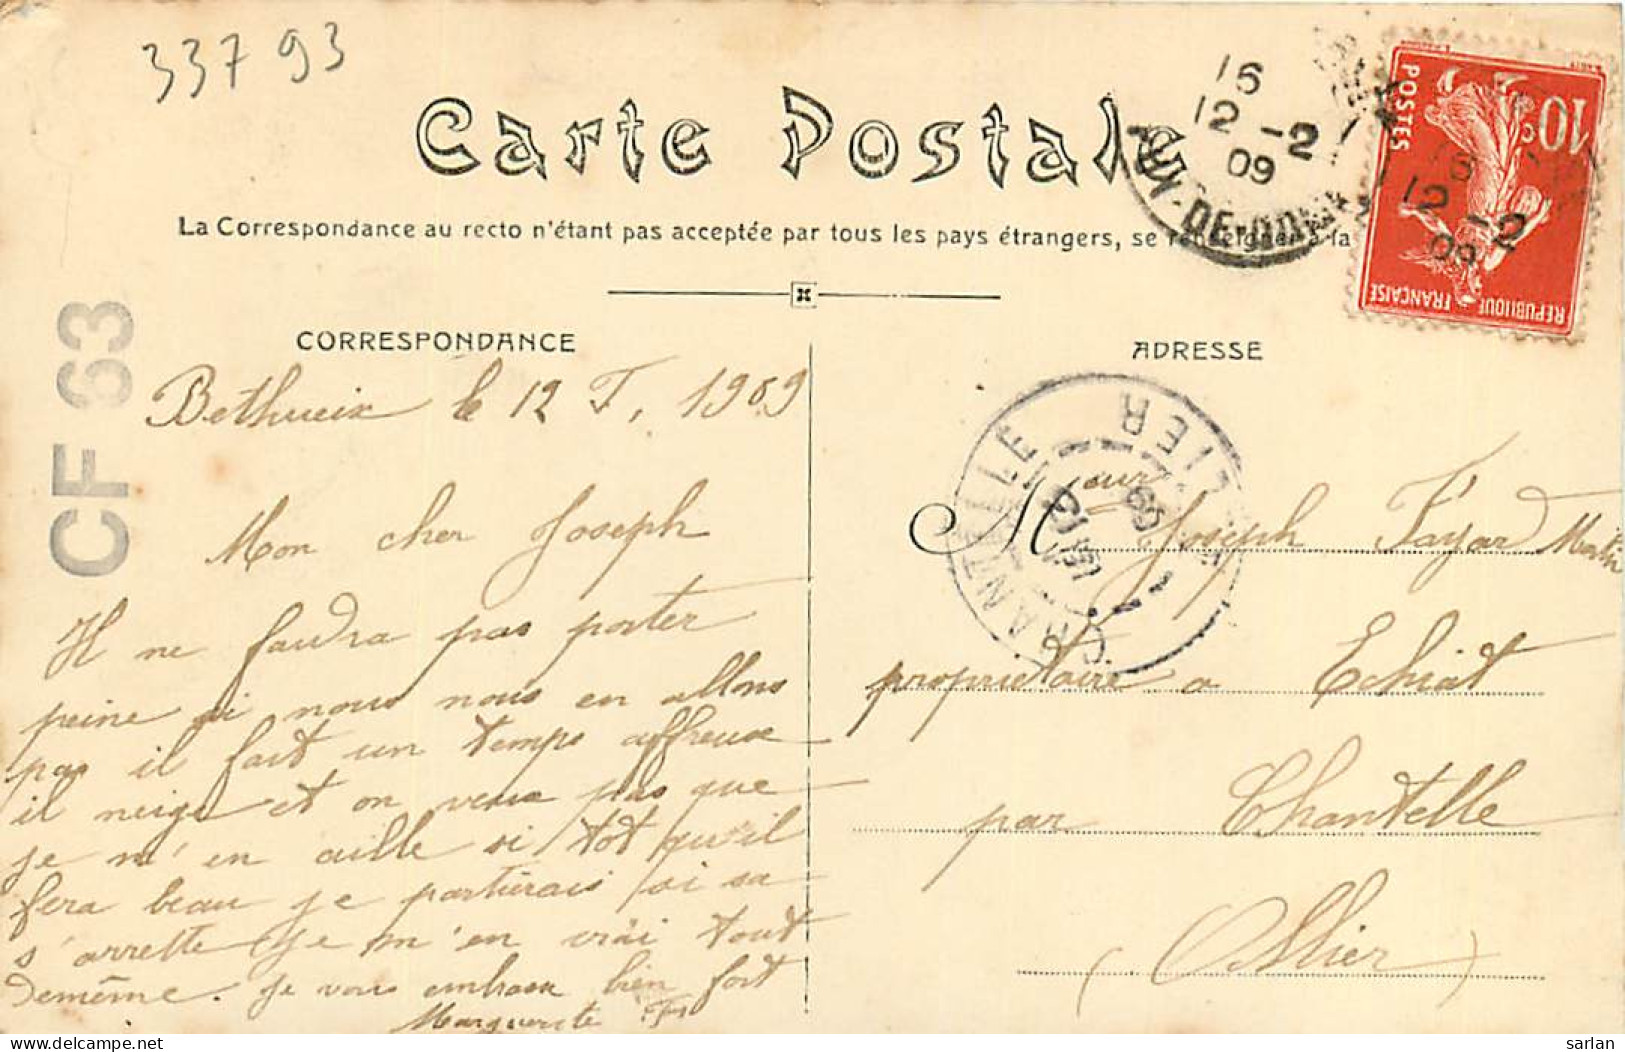 337 93
Carte Postale
La Correspondance au recto n'étant pas acceptée par tous les pays étrangers, se renseigner à la
16
12 -2
09
POSTES
10c
REPUBLIQUE FRANÇAISE
16
12 -2
09
CF 63
CORRESPONDANCE
le 12 F, 1909
Mon cher Joseph
Il ne faudra pas porter
peine si nous nous en allons
pas il fait un temps affreux
il neige et on veux pas que
je m'en aille si tot qu'il
fera beau je partirais si sa
s'arrette je m'en vrai tout
demême. Je vous embrasse bien fort
Marguerite
ADRESSE
CHANTELLE
ALLIER
Monsieur Joseph Fayar Martin
propriétaire a Echiat
par Chantelle
(Allier)
sarlan
delcampe.net